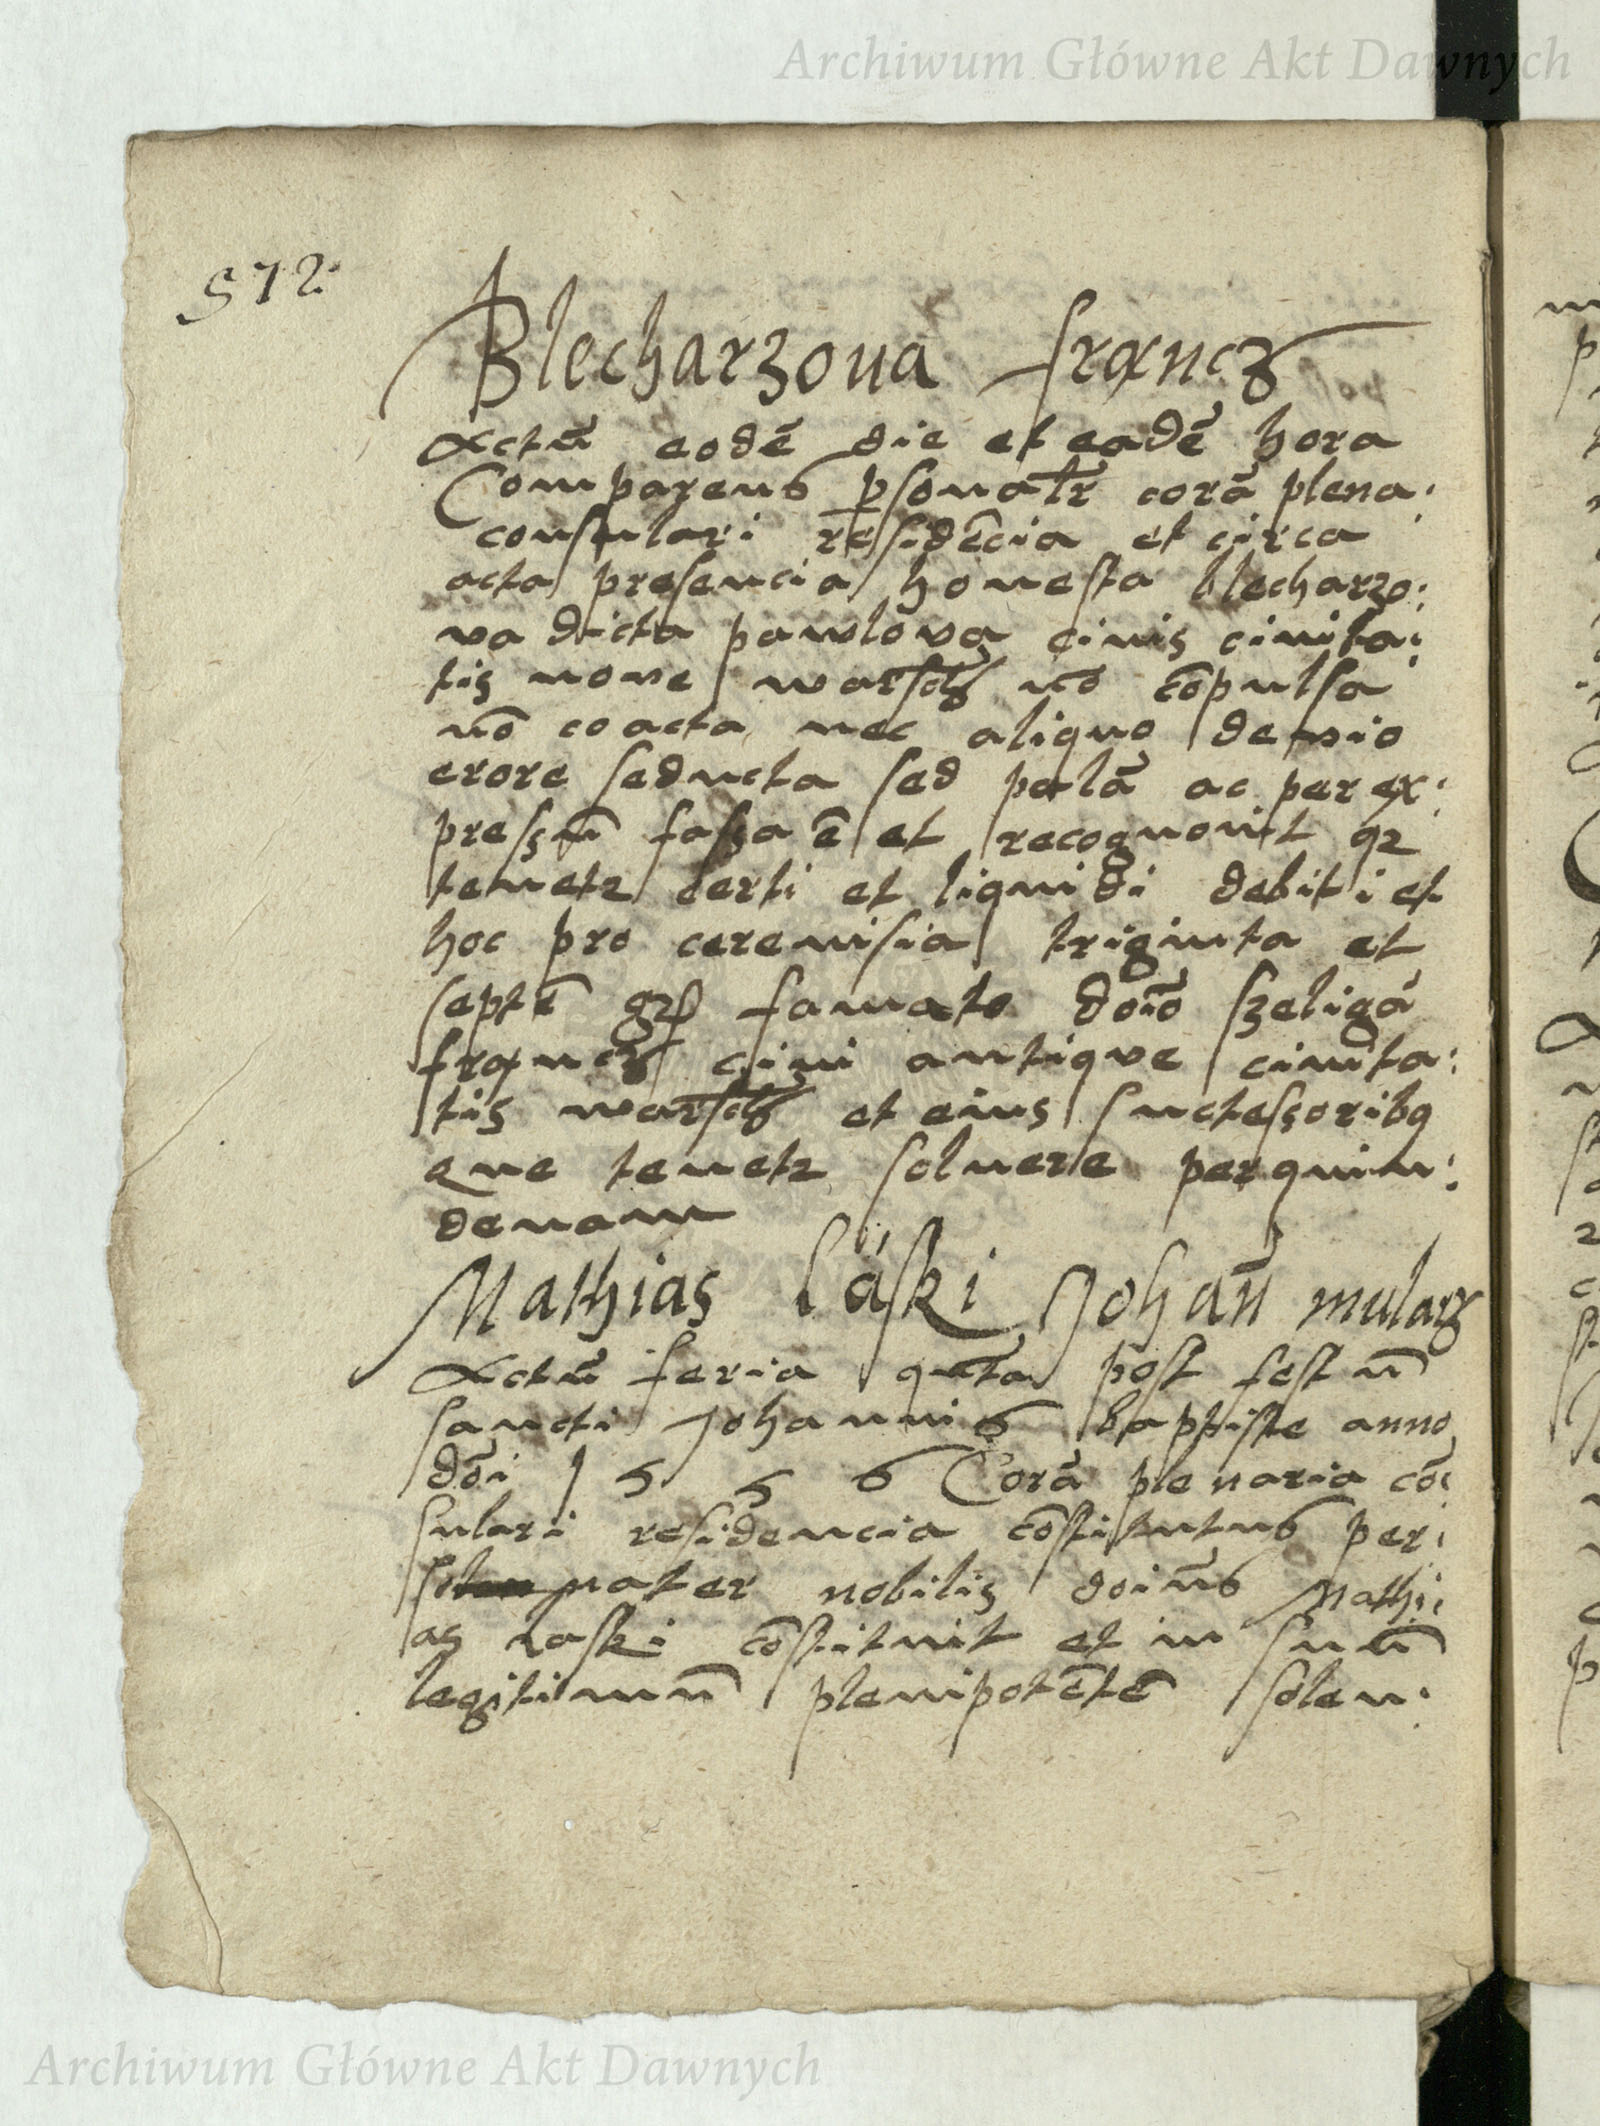 Archiwum Główne Akt Dawnych
572.
Blecharzova francz
Actū eodē die et eadē hora
Comparens psonalr corā plena:
consulari residēcia et circa
acta presencia honesta blecharzo:
va dicta pawlova civis civita:
tis nove warschᷤ nō cōpulsa
nō coacta nec aliquo devio
erore seducta sed palā ac per ex:
pressū fassa ē et recognovit qz
tenetz certi et liquidi debiti et
hoc pro cerevisia triginta et
septē famato doīo szeligā
francz civi antiqve civita:
tis warschᷤ et eius suctessoribq
que tenetz solvere per quin:
denam
Mathias láski Johan̄ mularz
Actū feria qnta post festū
sancti Johannis baptiste anno
dōi 1 5 5 6 Corā plenaria cō:
sulari residencia cōstitutus per:
so nater nobilis doin̄s Mathi:
as laski cōstituit et in suū
legitimū plenipotētē solen:
Archiwum Główne Akt Dawnych